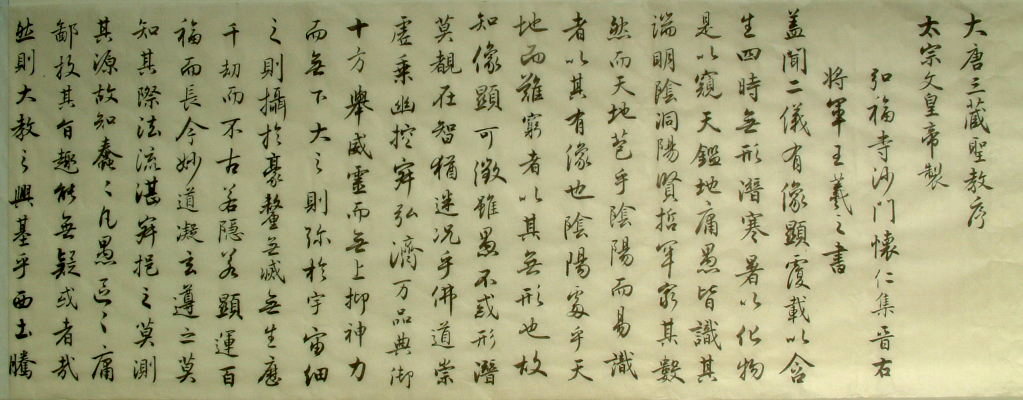 大唐三藏聖教序
太宗文皇帝製
弘福寺沙門懷仁集晉右
將軍王羲之書
盖聞二儀有像顯覆載以含
生四時無形潛寒暑以化物
是以窺天鑑地庸愚皆識其
端明陰洞陽賢哲罕窮其數
然而天地苞乎陰陽而易識
者以其有像也陰陽處乎天
地而難窮者以其無形也故
知像顯可徵雖愚不惑形潛
莫覩在智猶迷况乎佛道崇
虛乘幽控寂弘濟万品典御
十方舉威靈而無上抑神力
而無下大之則弥於宇宙細
之則攝於豪釐無滅無生歷
千劫而不古若隱若顯運百
福而長今妙道凝玄遵之莫
知其際法流湛寂挹之莫測
其源故知蠢〻凡愚區〻庸
鄙投其旨趣能無疑或者哉
然則大教之興基乎西土騰